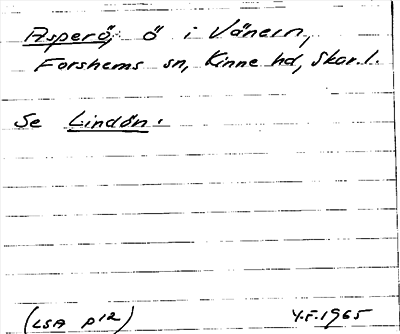 Asperö, ö i Vänern,
Forshems sn, Kinne hd, Skar. l.
Se Lindön.
(LSA p12) Y.F. 1965